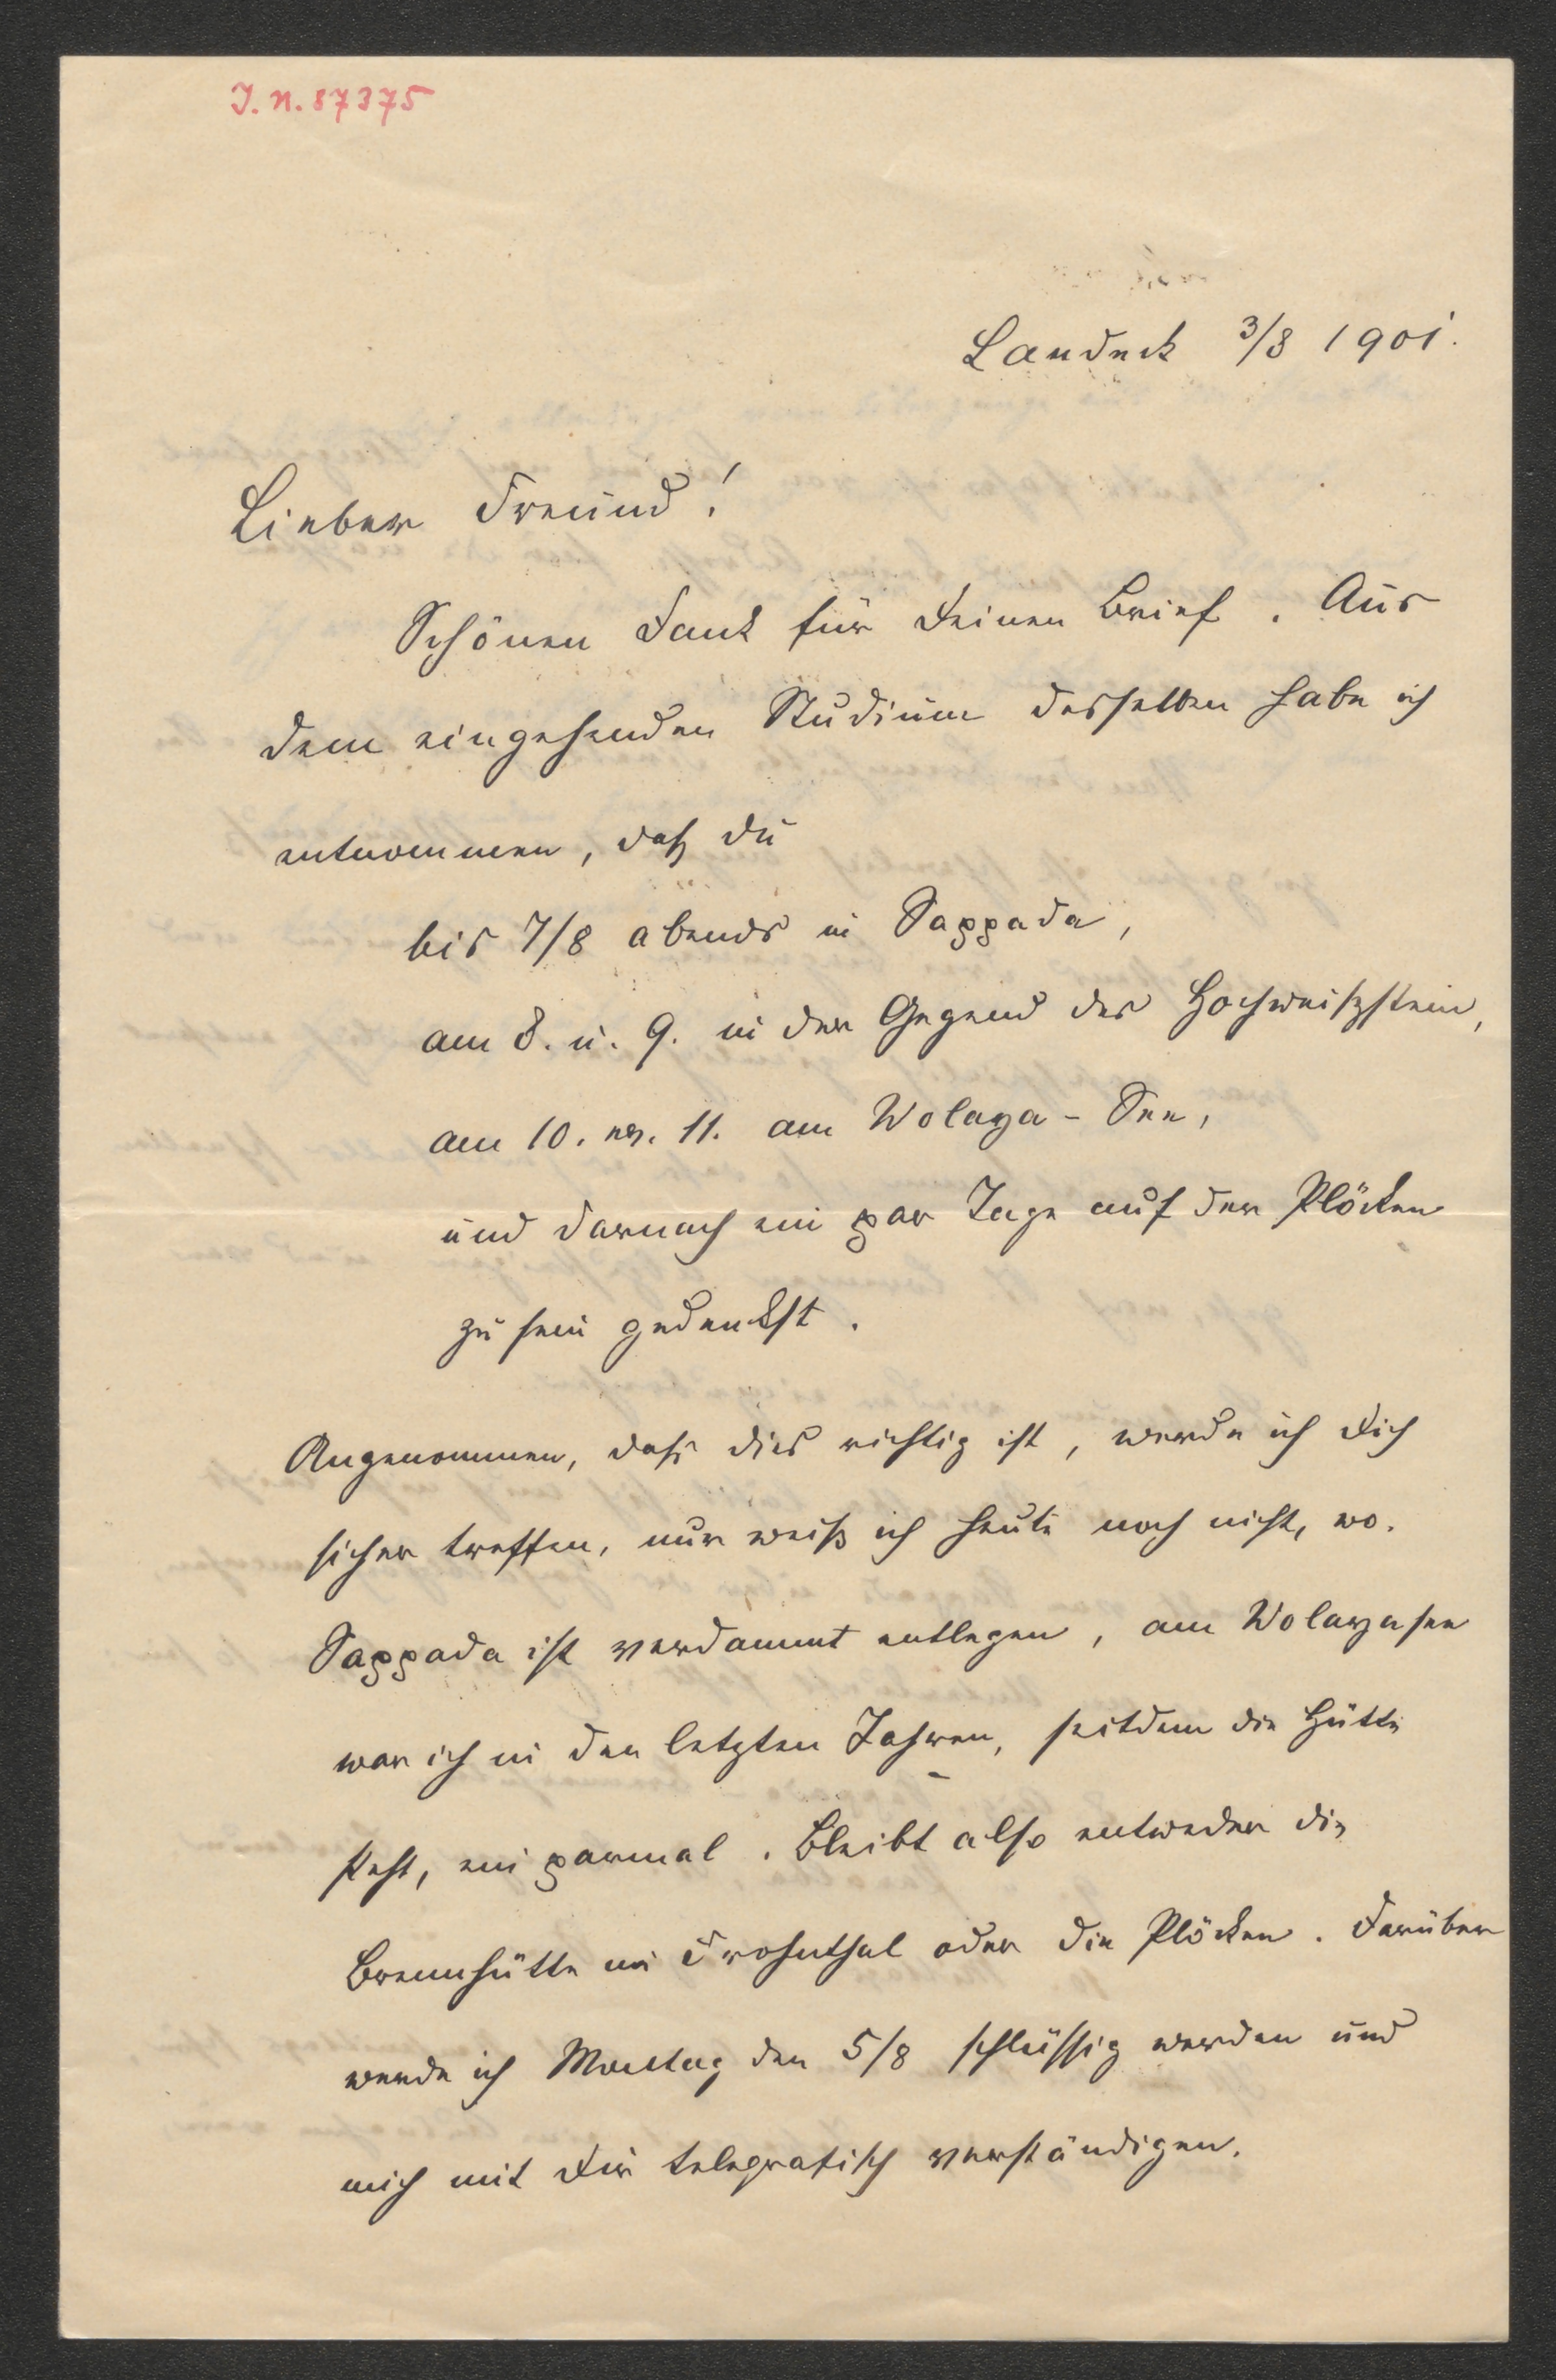 J. N. 87375
Landeck 3/8 1901.
Lieber Freund!
Schönen Dank für Deinen Brief. Aus
dem eingehenden Studium desselben habe ich
entnommen, daß Du
bis 7/8 abends in Sappada,
am 8. u. 9. in der Gegend des Hochweißstein,
am 10. ev. 11. am Wolaya-See,
und darnach ein par Tage auf der Plöcken
zu sein gedenkst.
Angenommen, daß dies richtig ist, werde ich Dich
sicher treffen, nur weiß ich heute noch nicht, wo.
Sappada ist verdammt entlegen, am Wolayasee
war ich in den letzten Jahren, seitdem die Hütte
steht, ein parmal. Bleibt also entweder die
im Frohnthal oder die Plöcken. Darüber
werde ich Montag den 5/8 schlüssig werden und
mich mit Dir telegrafisch verständigen.